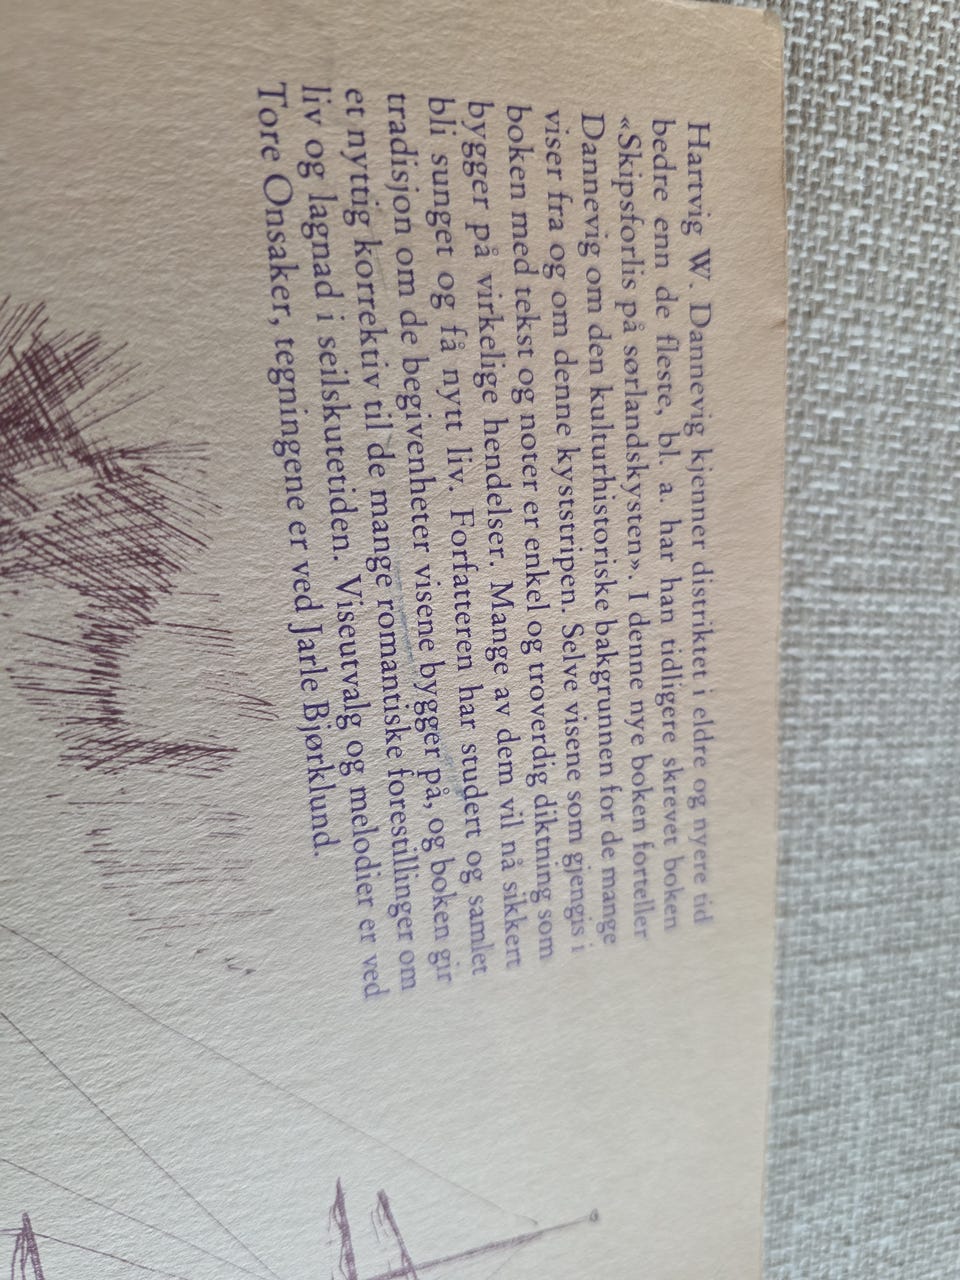 Hartvig W. Dannevig kjenner distriktet i eldre og nyere tid
bedre enn de fleste, bl. a. har han tidligere skrevet boken
«Skipsforlis på sørlandskysten». I denne nye boken forteller
Dannevig om den kulturhistoriske bakgrunnen for de mange
viser fra og om denne kyststripen. Selve visene som gjengis i
boken med tekst og noter er enkel og troverdig diktning som
bygger på virkelige hendelser. Mange av dem vil nå sikkert
bli sunget og få nytt liv. Forfatteren har studert og samlet
tradisjon om de begivenheter visene bygger på, og boken gir
et nyttig korrektiv til de mange romantiske forestillinger om
liv og lagnad i seilskutetiden. Viseutvalg og melodier er ved
Tore Onsaker, tegningene er ved Jarle Bjørklund.